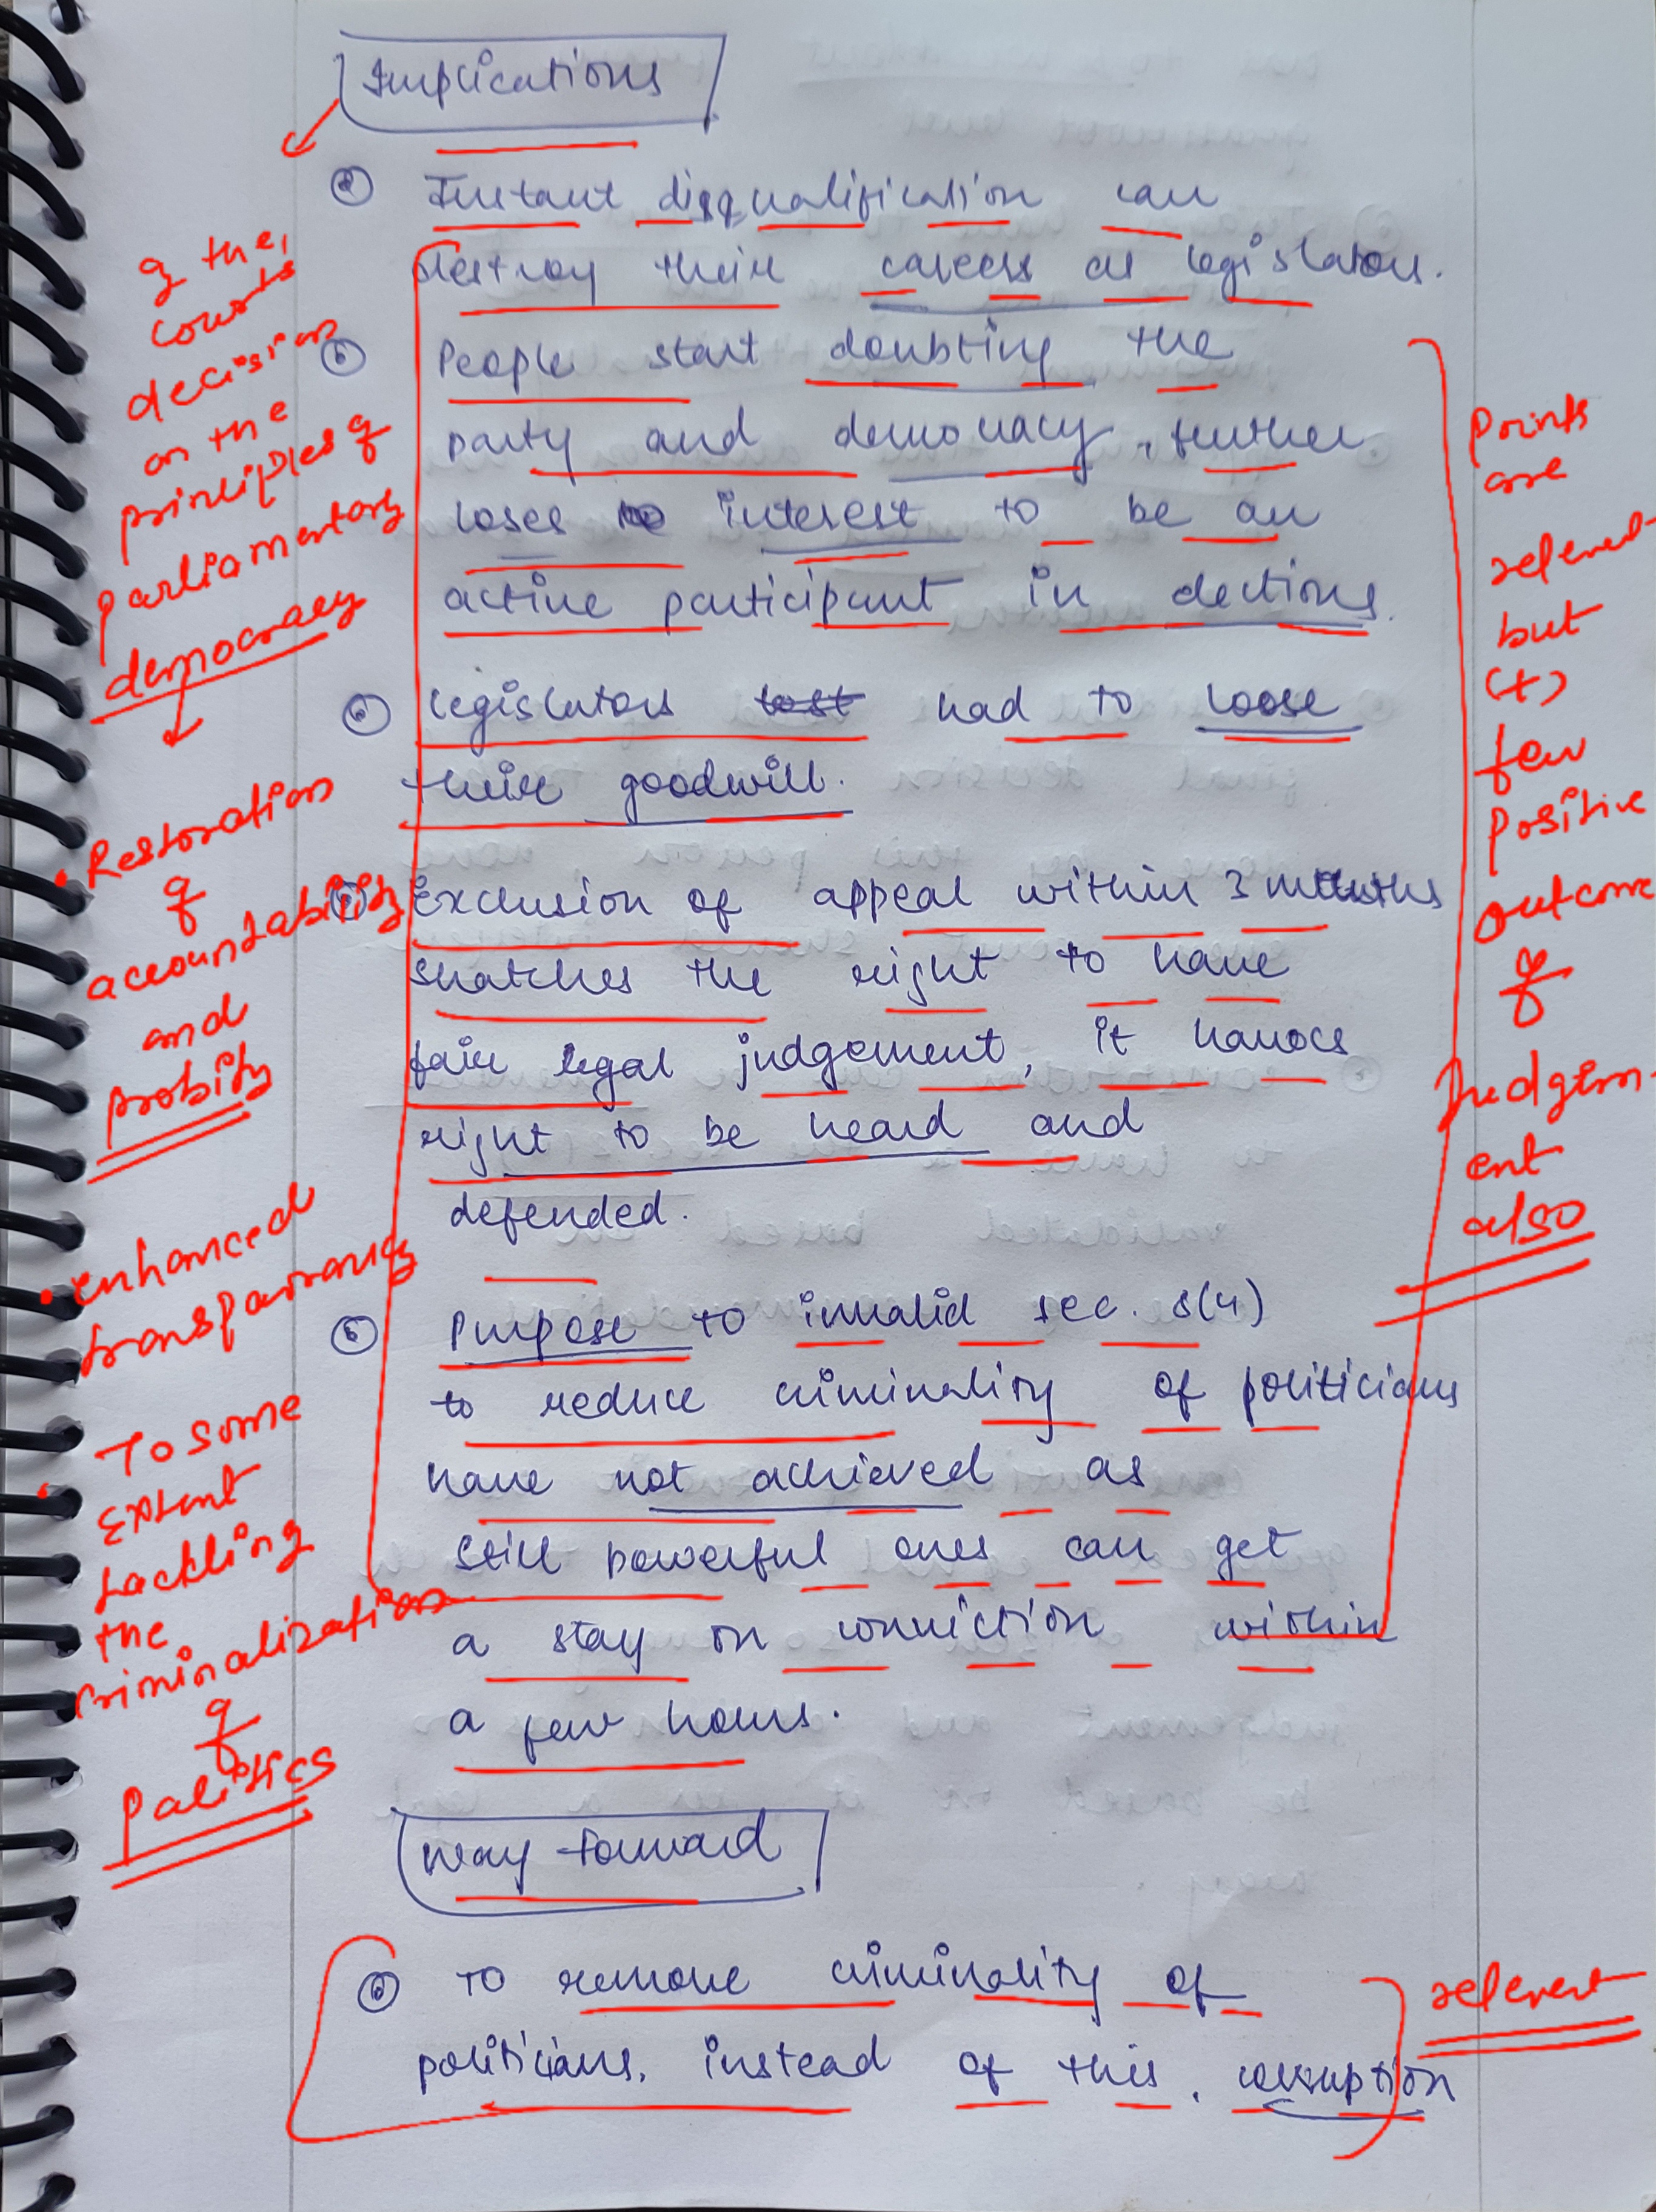 Implications
Instant disqualification can
destroy their careers as legislators.
People start doubting the
party and democracy, further
loses interest to be an
active participant in elections.
legislators lost had to loose
their goodwill.
Exclusion of appeal within 3 months
snatches the right to have
fair legal judgement, it
right to be heard and
defended.
Purpose to invalid sec. 8(4)
to reduce criminality of politicians
have not achieved as
still powerful ones can get
a stay on conviction within
a few hours.
Way forward
To remove criminality of
politicians, instead of this, corruption
of the
courts
decision
on the
principles of
parliamentary
democracy
• Restoration
of
accountability
and
probity
• enhanced
• To some
extent
tackling
the
criminalization
of
Politics
Points
are
relevent
but
(+)
few
positive
outcome
of
Judgem-
ent
also
relevent